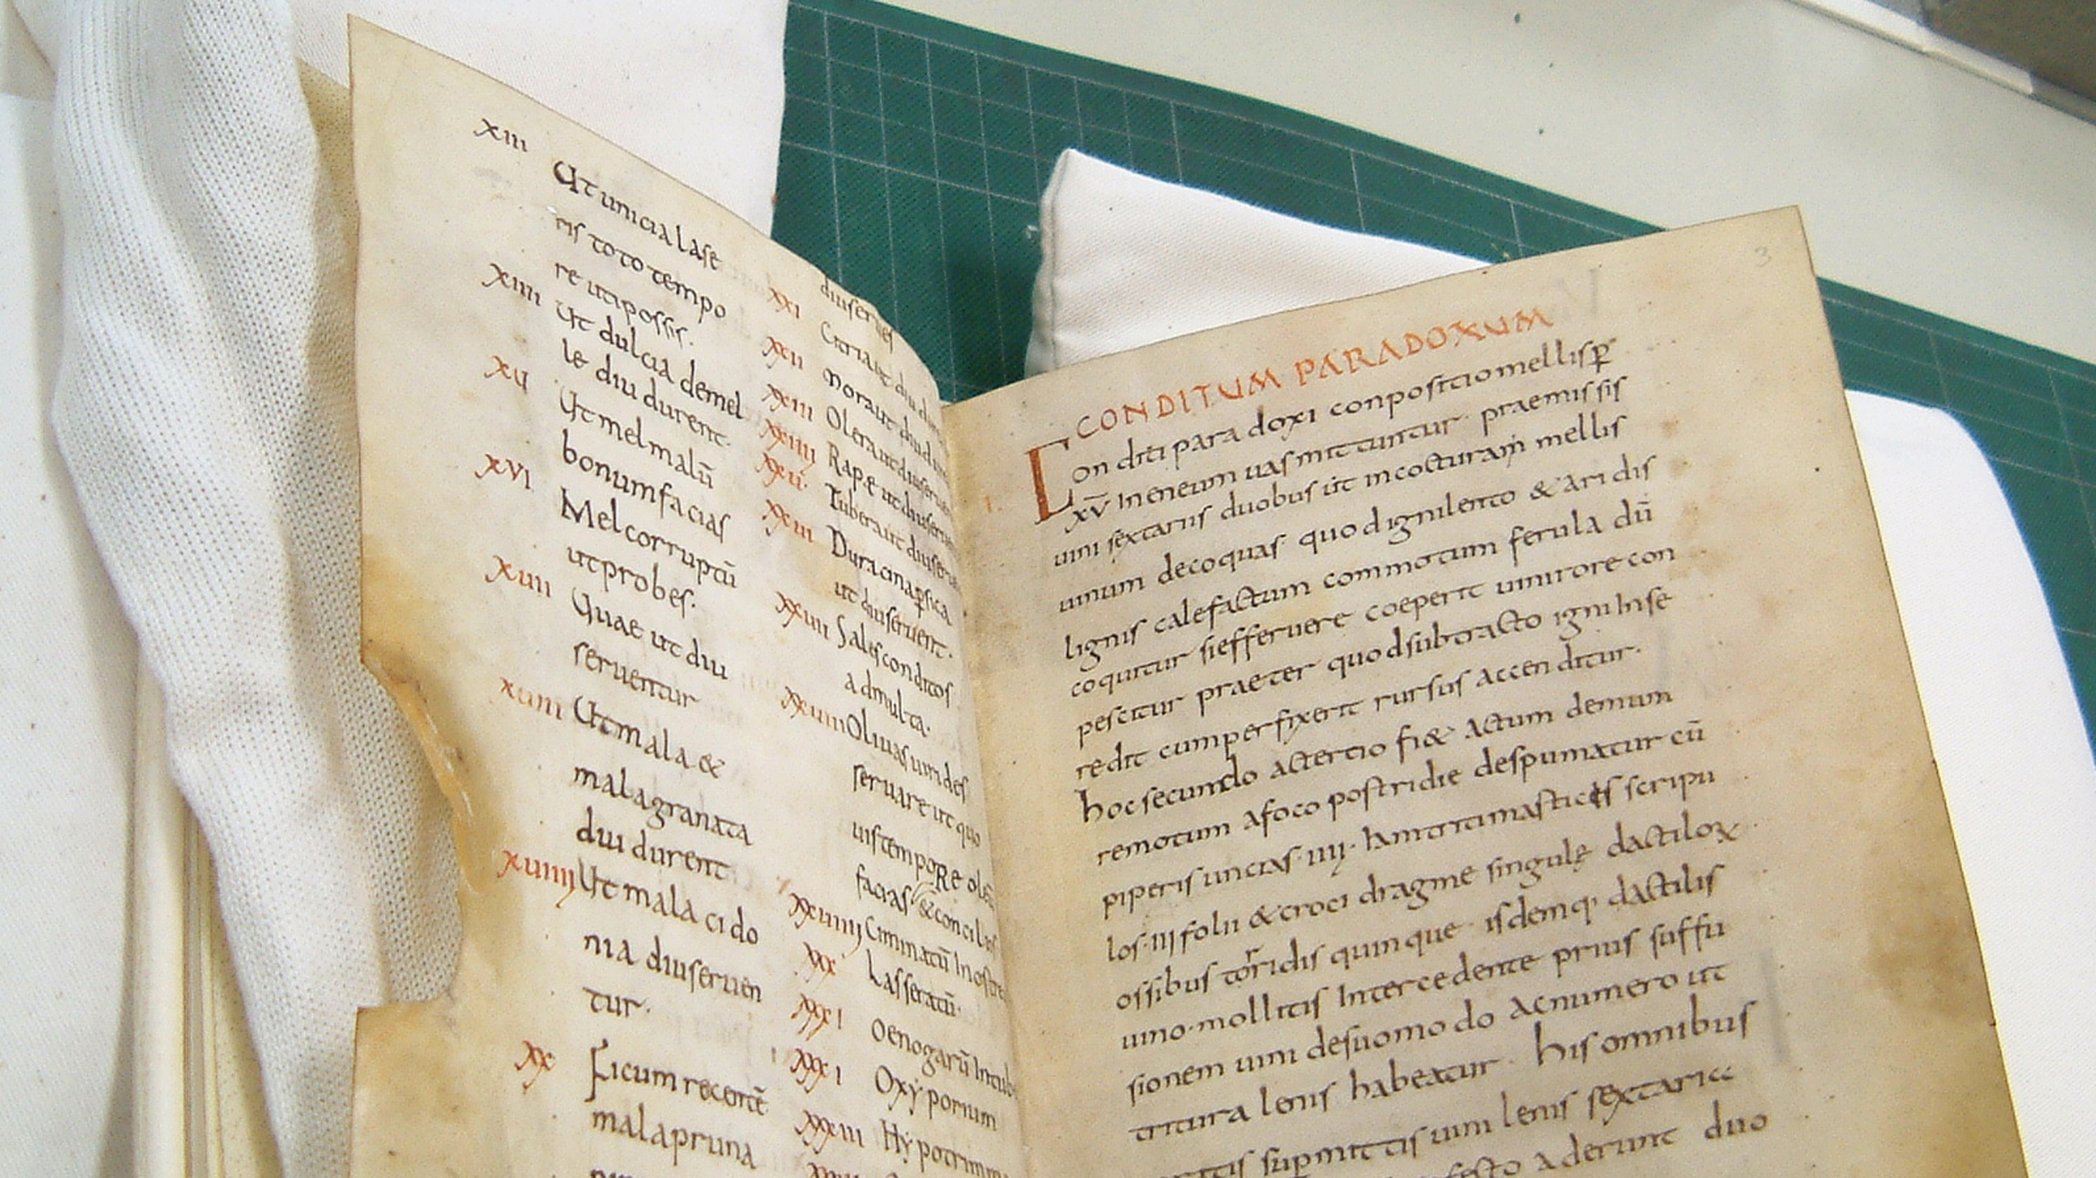 XIII
Ut unicia lase
ris toto tempo
re utipossis.
XIIII
Ut dulcia demel
le diu durent.
XV
Ut mel malū
bonum facias
XVI
Mel corruptū
ut probes.
XVII
Quae ut diu
serventur
XVIII
Ut mala &
malagranata
diu durent
XVIIII
Ut mala cido
nia diuserven
tur.
XX
Ficum recentē
mala pruna
diuserves
XXI
Citria ut diu
XXII
Mora ut diu
XXIII
Olera ut diuserven
XXIIII
Rapę ut diuserven
XXV.
Tubera ut diuserven
XXVI
Duracina persica
ut diuservent.
XXVII
Sales conditos
ad multa.
XXVIII
Olivas virides
servare ut quo
vis tempore oleū
facias
XXVIIII
Ciminatū in ostre
XXX
Lasseratū.
XXXI
Oenogarū in tube
XXXI
Oxyporum
XXXIII
Hypotrimma
3
CONDITUM PARADOXUM
I.
Conditi paradoxi conpositio mellis p̄
xv̄ in eneum vas mittuntur. praemissis
vini sextariis duobus ut in cocturam mellis
vinum decoquas. quod igni lento & aridis
lignis calefactum commotum ferula dū
coquitur si effervere coeperit vini rore con
pescitur praeter quod subtracto igni in se
redit cum perfixerit rursus accenditur.
hoc secundo ac tertio fi& actum demum
remotum a foco postridie despumatur cū
piperis uncias. IIII. iam triti masticis scripu
los. III folii & croci dragme singulę dactilor
ossibus torridis quinque. isdemq; dactilis
vino mollitis intercedente prius suffu
sionem vini de suo modo ac numero ut
tritura lenis habeatur. his omnibus
vini lenis sextaria
aderunt duo